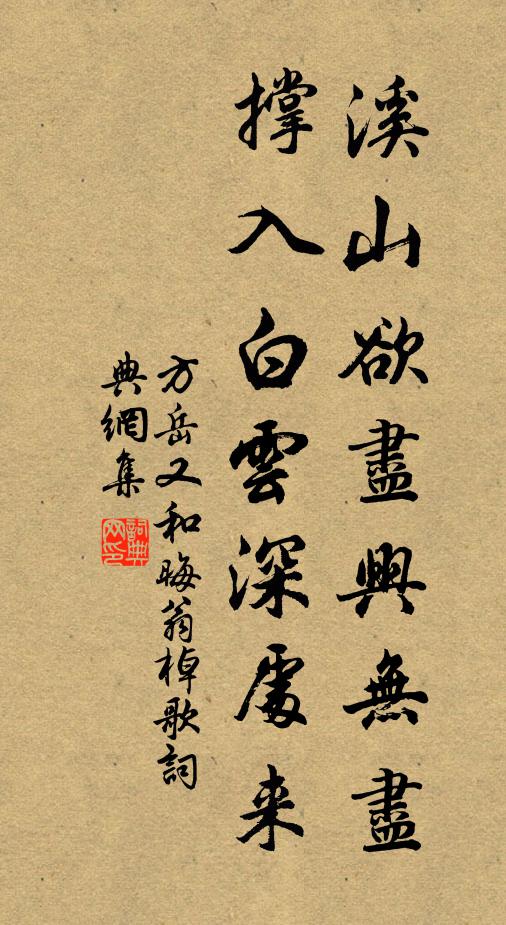 溪山欲盡興無盡
撐入白雲深處来
方岳又和晦翁棹歌詞
典網集
詞典
网印